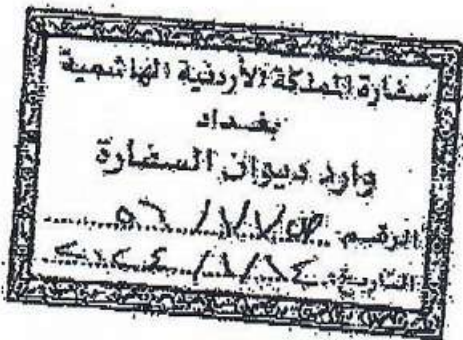 سفارة المملكة الأردنية الهاشمية
بغداد
وارد ديوان السفارة
الرقم
التاريخ